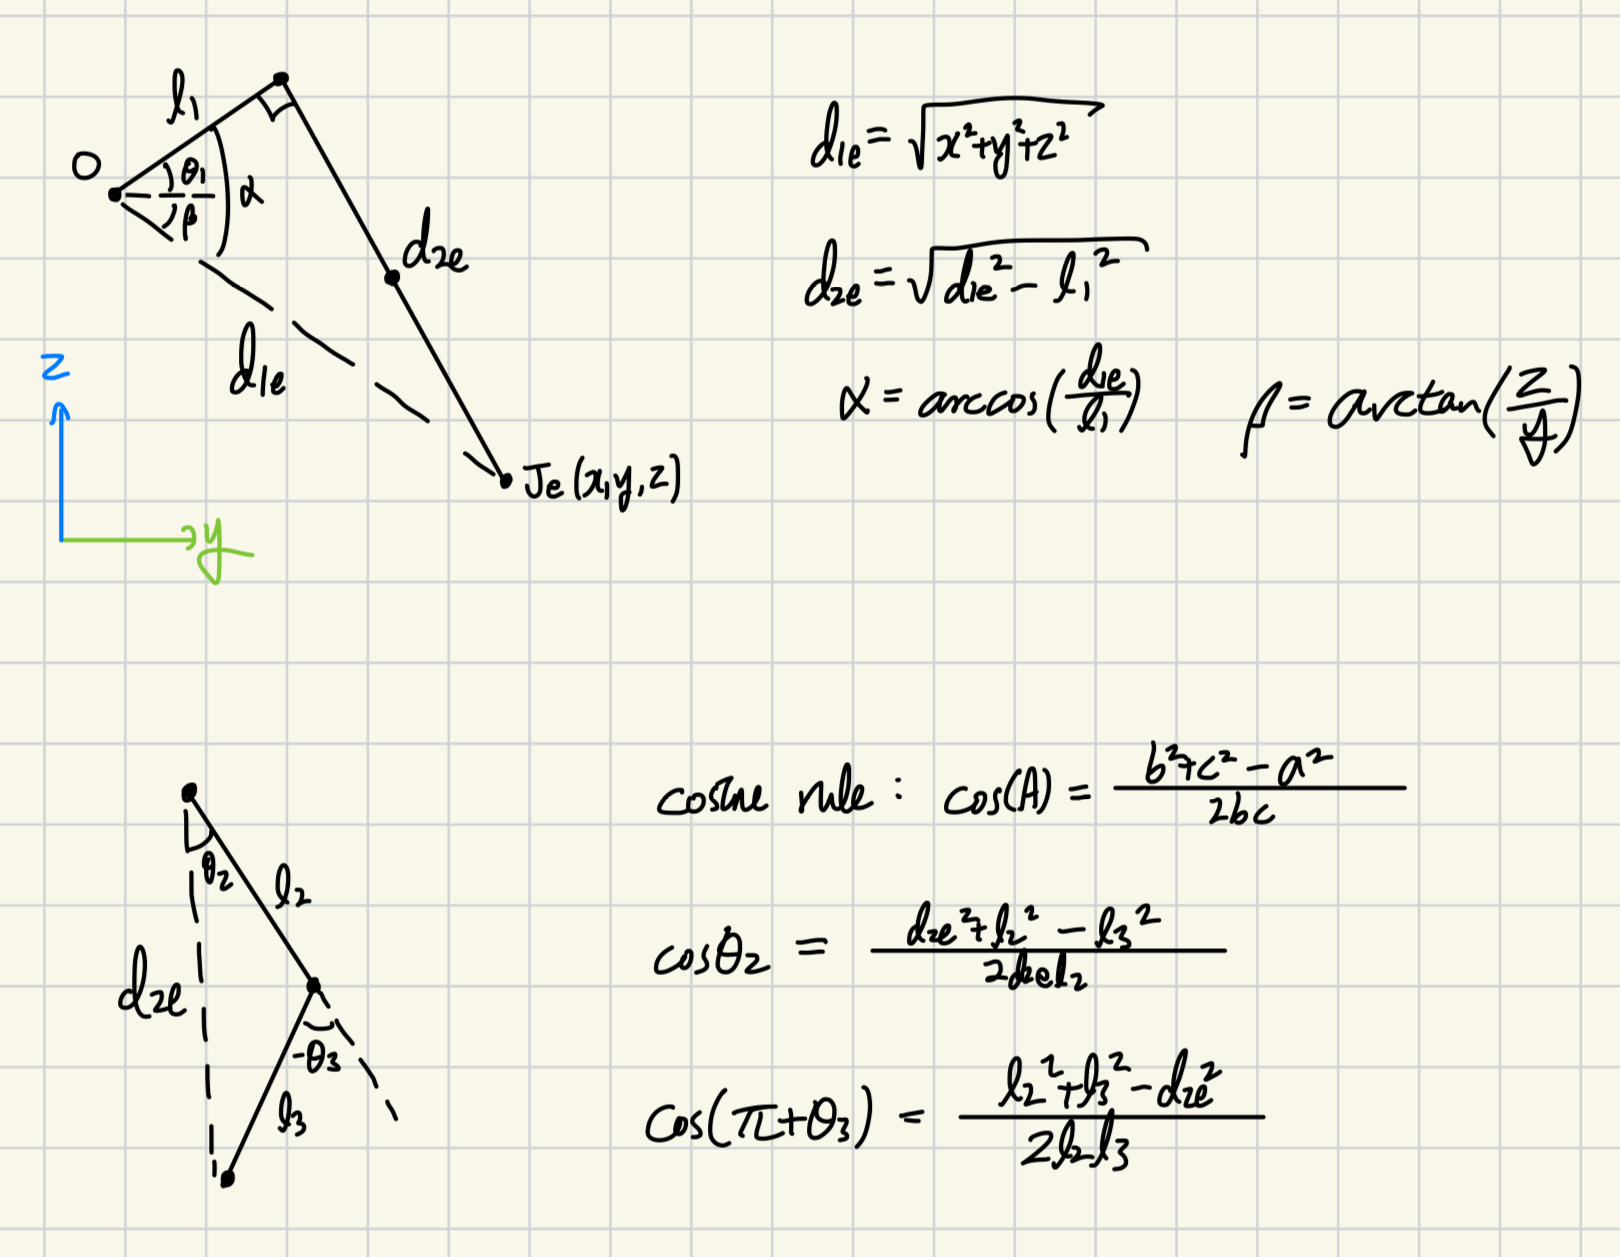 l₁
O
θ₁
α
β
d₂ₑ
d₁ₑ
z
y
Jₑ(x,y,z)
d₁ₑ = √(x²+y²+z²)
d₂ₑ = √(d₁ₑ² - l₁²)
α = arccos(d₁ₑ/l₁) β = arctan(z/y)
θ₂
l₂
d₂ₑ
-θ₃
l₃
cosine rule : cos(A) = (b²+c²-a²)/2bc
cosθ₂ = (d₂ₑ²+l₂²-l₃²)/2d₂ₑl₂
cos(π+θ₃) = (l₂²+l₃²-d₂ₑ²)/2l₂l₃